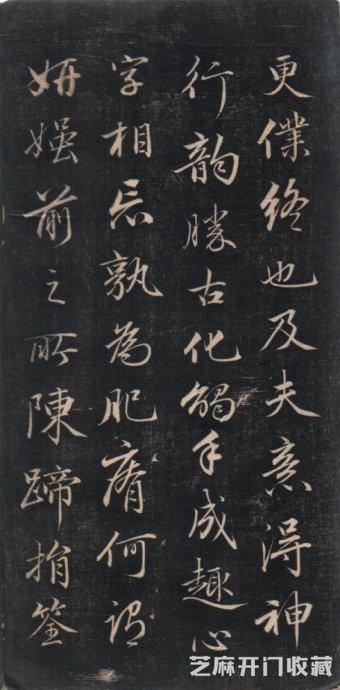 更僕終也及夫意得神
行韵勝古化觸手成趣心
字相忘孰為肥瘠何謂
妍媸前之所陳蹄捐筌
芝麻开门收藏